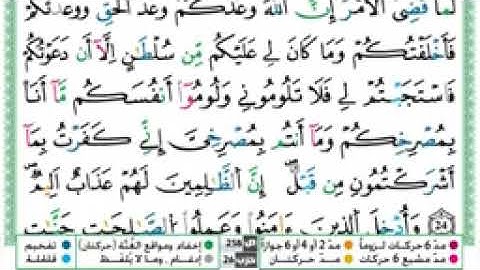 لَمَّا قُضِيَ ٱلْأَمْرُ إِنَّ ٱللَّهَ وَعَدَكُمْ وَعْدَ ٱلْحَقِّ وَوَعَدتُّكُمْ
فَأَخْلَفْتُكُمْ وَمَا كَانَ لِيَ عَلَيْكُم مِّن سُلْطَٰنٍ إِلَّآ أَن دَعَوْتُكُمْ
فَٱسْتَجَبْتُمْ لِي فَلَا تَلُومُونِي وَلُومُوٓا۟ أَنفُسَكُم مَّآ أَنَا۠
بِمُصْرِخِكُمْ وَمَآ أَنتُم بِمُصْرِخِيَّ إِنِّي كَفَرْتُ بِمَآ
أَشْرَكْتُمُونِ مِن قَبْلُ ۗ إِنَّ ٱلظَّٰلِمِينَ لَهُمْ عَذَابٌ أَلِيمٌ
وَأُدْخِلَ ٱلَّذِينَ ءَامَنُوا۟ وَعَمِلُوا۟ ٱلصَّٰلِحَٰتِ جَنَّٰتٍ
مدّ 6 حركات لزوماً مدّ 2 أو 4 أو 6 جوازاً إخفاء ومواقع الغُنَّة (حركتان) تفخيم
مدّ مشبع 6 حركات مدّ حركتان إدغام، وما لا يُلفظ قلقلة